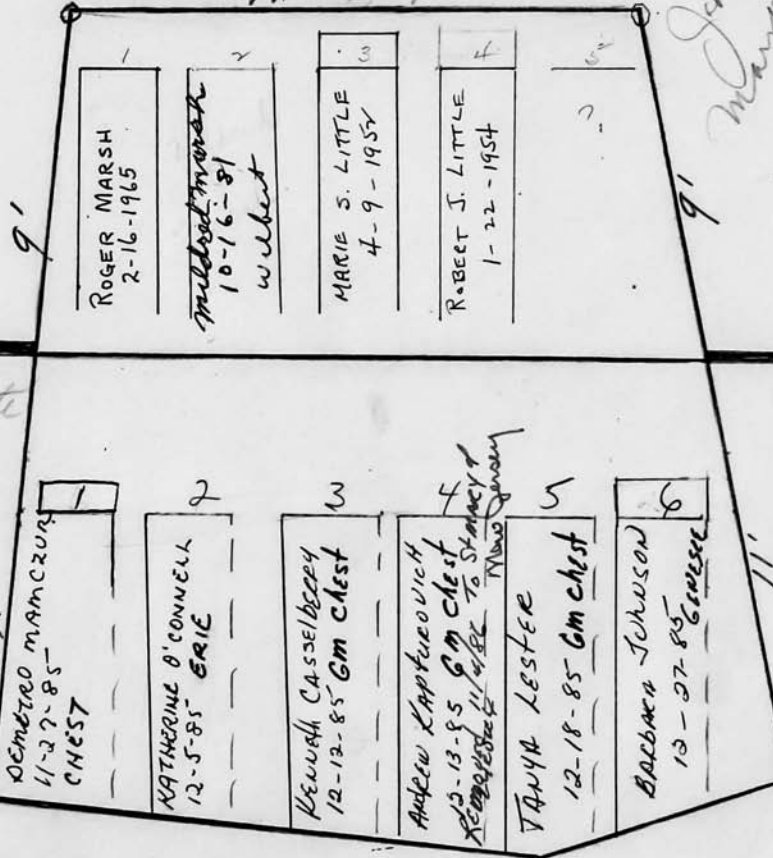 9'
1
ROGER MARSH
2-16-1965
2
Mildred Marsh
10-16-81
Wilbert
3
MARIE S. LITTLE
4-9-1952
4
ROBERT J. LITTLE
1-22-1954
5
?
9'
1
DEMETRO MAMCZUR
11-27-85
CHEST
2
KATHERINE O'CONNELL
12-5-85 ERIE
3
KENNETH CASSELBERRY
12-12-85 Gm Chest
4
ANDREW KAPTUROVICH
12-13-85 Gm Chest
Removed 11/6/86 To St
New Jersey
5
TANYA LESTER
12-18-85 Gm Chest
6
BARBARA JOHNSON
12-27-85
GENESEE
11'